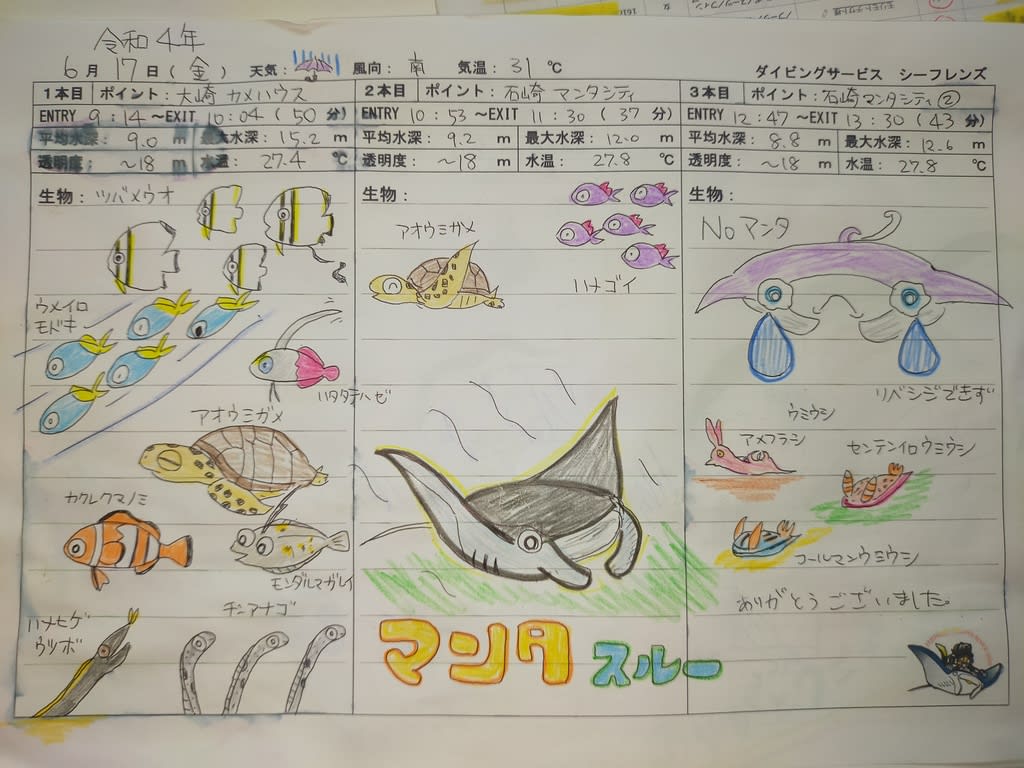 令和4年
6月 17日(金) 天気: 風向: 南 気温: 31 ℃
ダイビングサービス シーフレンズ
1本目 ポイント: 大崎 カメハウス
ENTRY 9:14~EXIT 10:04 (50 分)
平均水深: 9.0 m 最大水深: 15.2 m
透明度: ~18 m 水温: 27.4 ℃
生物: ツバメウオ
ウメイロ
モドキ
ハタタテハゼ
アオウミガメ
カクレクマノミ
モンダルマガレイ
ハナヒゲ
ウツボ
チンアナゴ
2本目 ポイント: 石崎 マンタシティ
ENTRY 10:53~EXIT 11:30 (37 分)
平均水深: 9.2 m 最大水深: 12.0 m
透明度: ~18 m 水温: 27.8 ℃
生物:
アオウミガメ
ハナゴイ
マンタ スルー
3本目 ポイント: 石崎マンタシティ②
ENTRY 12:47~EXIT 13:30 (43 分)
平均水深: 8.8 m 最大水深: 12.6 m
透明度: ~18 m 水温: 27.8 ℃
生物:
Noマンタ
リベンジできず
ウミウシ
アメフラシ
センテンイロウミウシ
コールマンウミウシ
ありがとうございました。